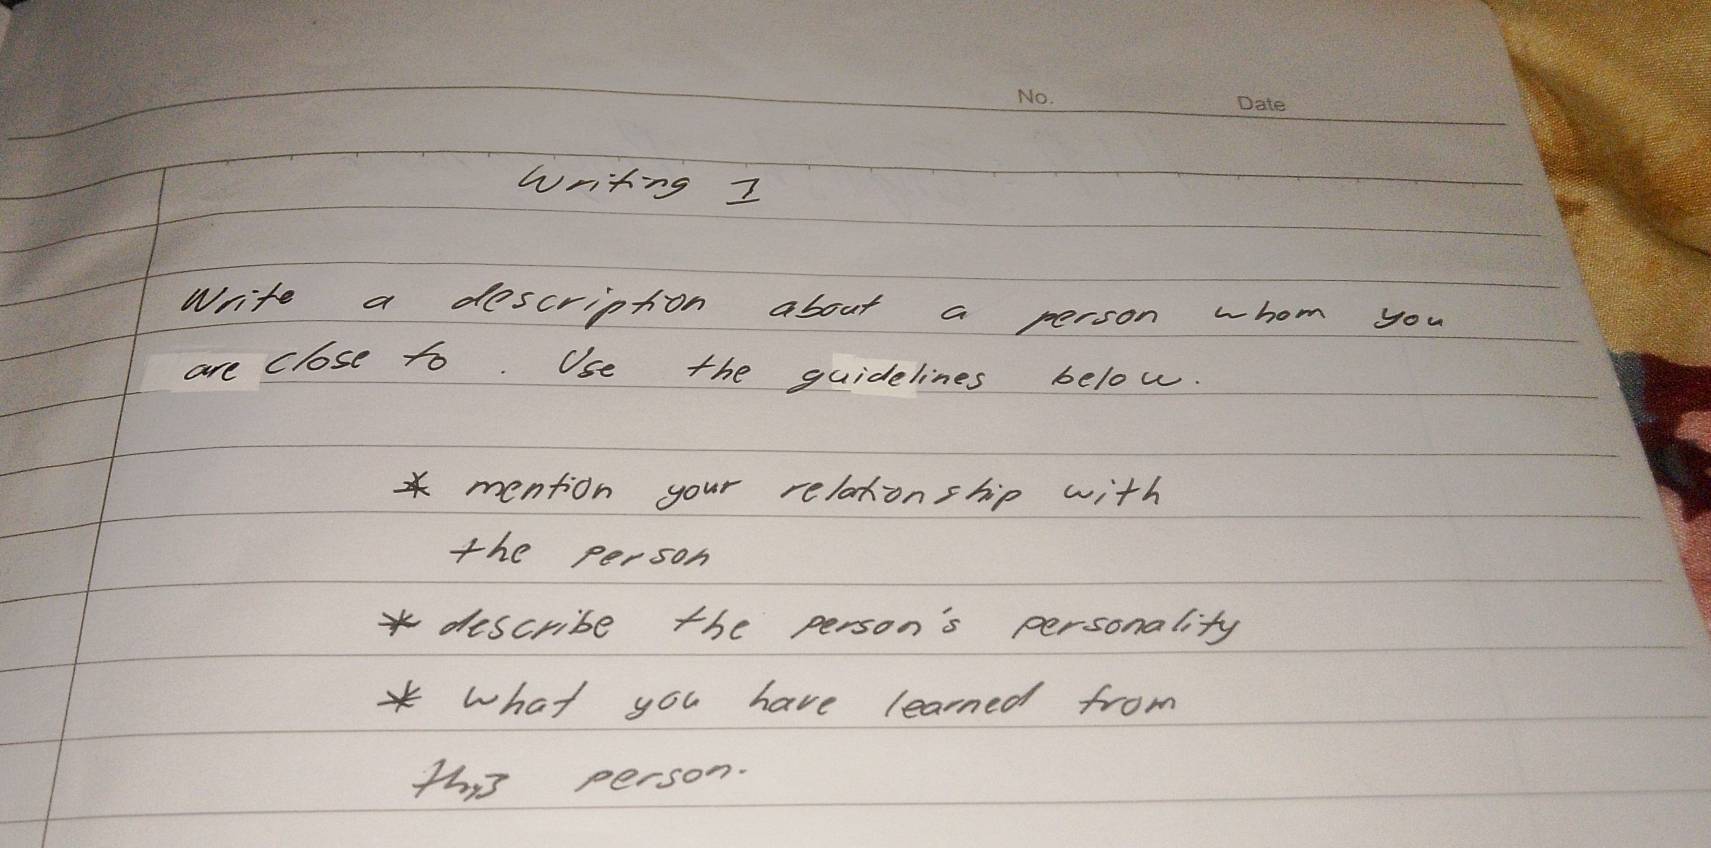 No. Date
Writing 1
Write a description about a person whom you
are close to. Use the guidelines below.
* mention your relationship with
the person
* describe the person's personality
* what you have learned from
this person.